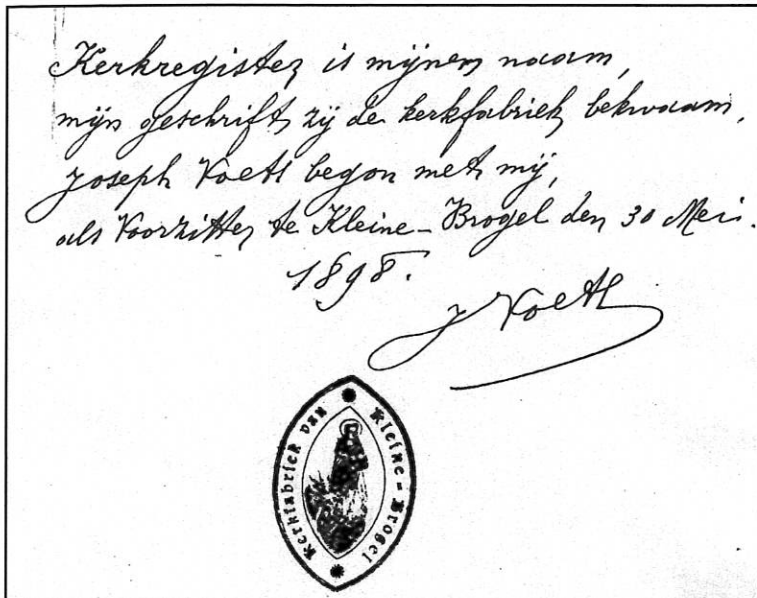 Kerkregister is mijnen naam,
mijn geschrift zij de kerkfabriek bekwaam,
Joseph Voets begon met mij,
als Voorzitter te Kleine-Brogel den 30 Mei.
1898.
J Voets
Kerkfabriek van Kleine-Brogel